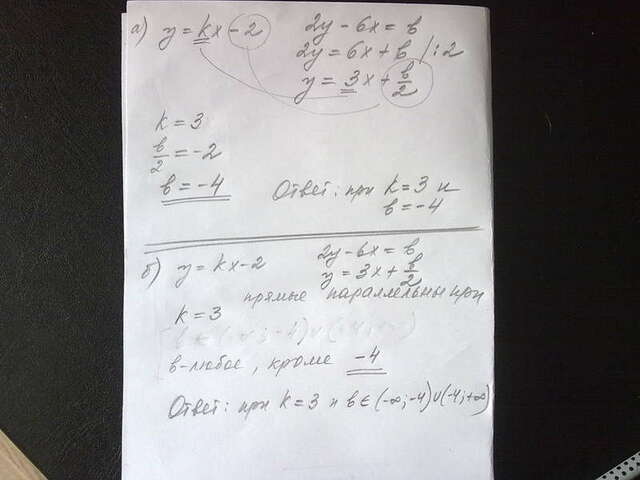 а) y = kx - 2
2y - 6x = b
2y = 6x + b /:2
y = 3x + b/2
k = 3
b/2 = -2
b = -4
Ответ: при k = 3 и
b = -4
б) y = kx - 2
2y - 6x = b
y = 3x + b/2
прямые параллельны при
k = 3
b ∈ (-∞; -4) ∪ (-4; +∞)
b - любое, кроме -4
Ответ: при k = 3 и b ∈ (-∞; -4) ∪ (-4; +∞)